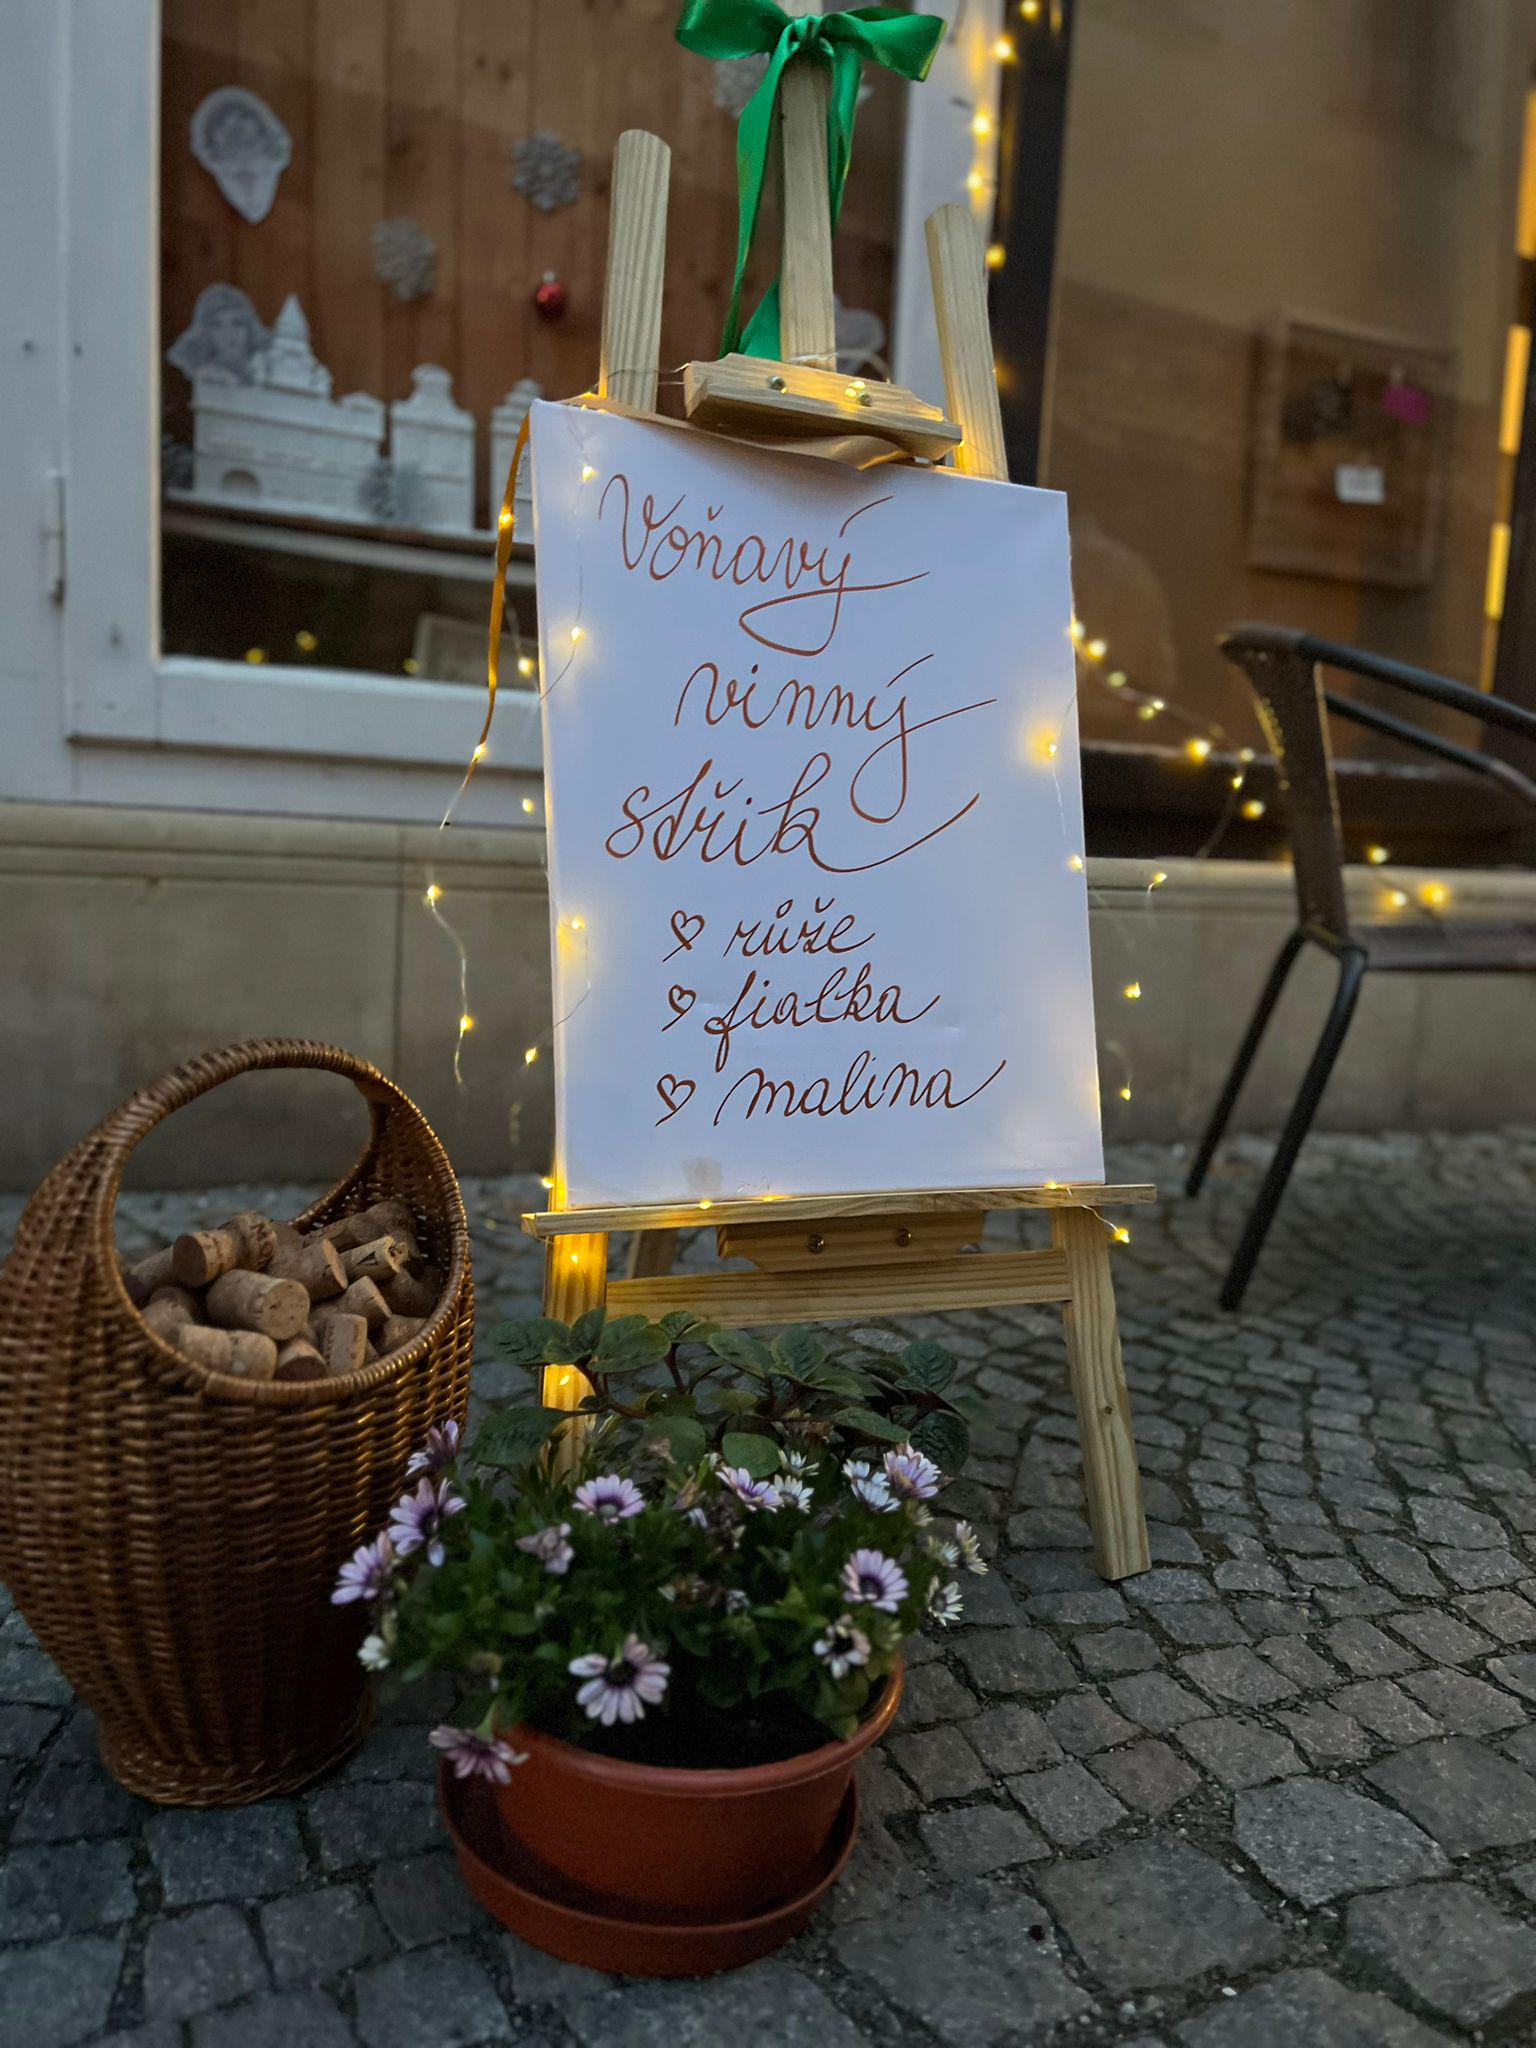 Voňavý
vinný
střik
růže
fialka
malina